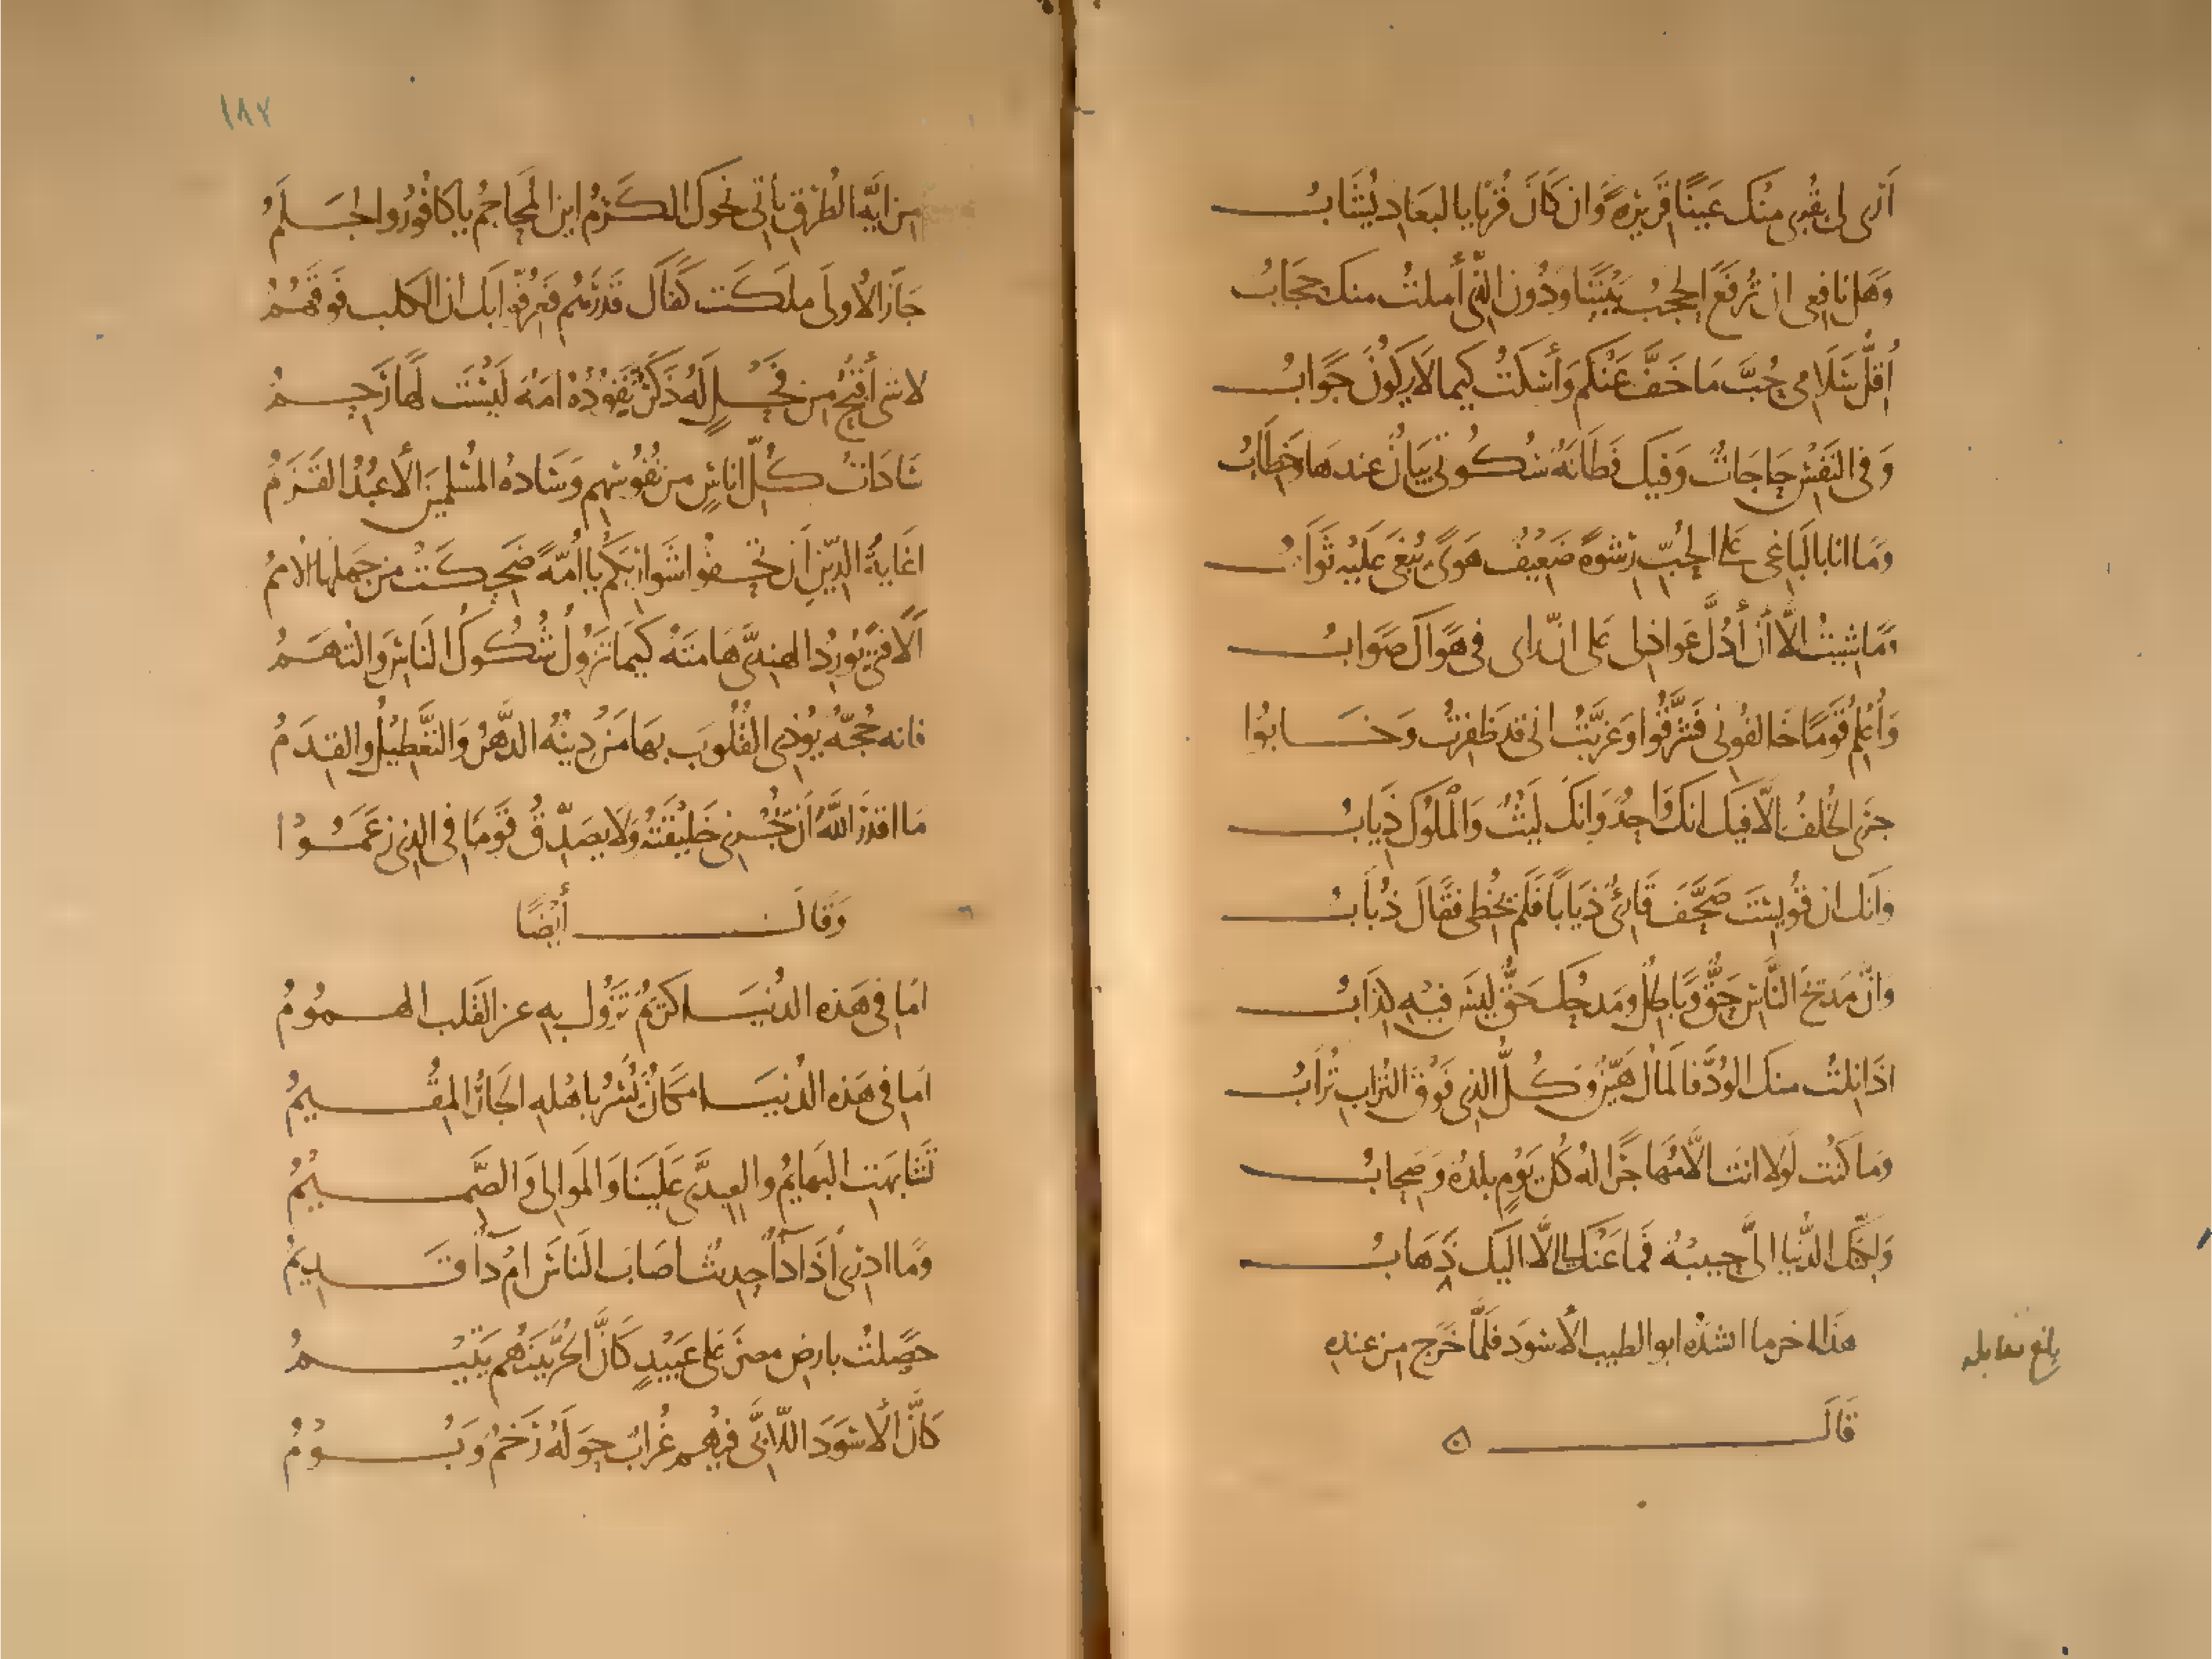 أَرَى لِي بِقُربى مِنْكَ عَيْنًا قَرِيرَةً وَان كَانَ قُربًا بِالبعَادِ يُشَابُ
وَهَل نافِعى ان تُرفَعَ الحُجبُ بَيْنَنَا وَدُونَ الذِّى أَملتُ منكَ حِجَابُ
أُقِلُّ سَلَامى حُبَّ مَا خَفَّ عَنْكم وَأَسْكُتُ كيما لَا يَكُونَ جَوابُ
وَفى النَفْسِ حَاجَاتٌ وَفيكَ فَطَانَةٌ سُكُوتى بَيَانٌ عندهَا وَخِطَابُ
وَمَا انا بالبَاغى عَلَى الحُبِّ رِشْوةً ضَعِيْفُ هَوًى يُبْغَى عَلَيْهِ ثَوَابُ
وَمَا شِيتُ الَّا أَن أَدُلَّ عَواذِلى عَلى انّ رَاى فى هَوَاكَ صَوَابُ
وَأُعْلِمَ قَوْمًا خَالفُونى فَشَرَّقُوا وَغَرَّبْتُ انى قَد ظَفِرتُ وَخَابُوا
جَرَى الخُلفُ الّا فيكَ انكَ وَاحِدٌ وَانكَ لَيْثٌ وَالمُلُوكُ ذِيَابُ
وَانكَ ان قُويِسْتَ صَحَّفَ قَارئٌ ذِيَابًا فَلَم يُخطِى فقَالَ ذُبَابُ
وَانَّ مَديحَ النَّاسِ حَقٌّ وَبَاطِلٌ وَمَدحُكَ حَقٌّ لَيْسَ فيْهِ كِذَابُ
اذَا نِلتُ منكَ الوُدَّ فَالمَالُ هَيِّنٌ وَكُلُّ الذِى فَوْقَ التُرَابِ تُرَابُ
وَمَا كنت لَوْلَا انتَ الَّا مُهَاجرًا لهُ كُلَّ يَوْمٍ بلدَةٌ وَصِحَابُ
وَلكِنَّكَ الدُّنْيَا الىَّ حَبِيبَةً فَمَا عَنْكَ لى الَّا اليْكَ ذَهَابُ
هَذا اخر ما انشدَهُ ابو الطيب الأَسْوَد فلَمَّا خَرَج مِن عندِهِ
بلغ مقابله
قَالَ ۞
١٨٧
مِن ايَّةِ الطُرْقِ يَأتى نحوَكَ الكَرَمُ اين المحَاجمُ يا كافُورُ وَالجَلَمُ
جَازَ الاولَى ملكَت كفَّاكَ قَدْرَهُم فَعُرِّفُوا بكَ ان الكلب فَوقَهُمُ
لا شى أَقبَحُ مِن فَحْلٍ لَهُ ذَكَرٌ تَقُوْدُهُ امَةٌ لَيْسَت لَهَا رَحِمُ
سَادَاتُ كُلِّ انَاسٍ مِن نفُوسِهِم وَسَادةُ المُسْلمِينَ الأَعْبُدُ القَزَمُ
اغَايَةُ الدِّينِ اَن تحْفُوا شَوَارِبَكُم يا اُمَّةً ضَحِكَتْ مِن جَهْلِهَا الأُمَمُ
الَا فتًى يُورِدُ الهِندِىَّ هَامَتَهُ كيمَا تَزُولَ شُكُوكُ النَاسِ وَالتُهَمُ
فانه حُجَّةٌ يُؤذِى القُلُوبَ بهَا مَن دِينُهُ الدَّهْرُ وَالتَّعْطِيلُ وَالقِدَمُ
مَا اقدَرَ اللّهَ أَن يُخْزِى خَلِيْقَتَهُ وَلَا يُصَدِّقَ قَوْمًا فى الذِى زعَمُوْا
وَقَالَ أَيْضًا
امَا فى هَذهِ الدُنيَا كَرِيْمٌ تَزُولُ بهِ عن القَلب الهمُومُ
امَا فى هَذه الدُنيَا مَكَانٌ يُسَرُّ باهْلهِ الجَارُ المُقِيمُ
تَشَابَهَتِ البَهَايِمُ وَالعِبِدَّى عَلَيْنَا وَالمَوالِى وَالصَّمِيْمُ
وَمَا ادرِى أَذَا دَآءٌ حَدِيثٌ أصَابَ النَاسَ ام دَآءٌ قَدِيمُ
حصَلتُ بارضِ مصرَ عَلى عَبِيْدٍ كَأَنَّ الحُرَّ بَيْنَهُم يَتيْمُ
كَأَنَّ الأَسْوَدَ اللّابِىَّ فيْهم غُرَابٌ حَوْلَهُ رَخَمٌ وَبُوْمُ